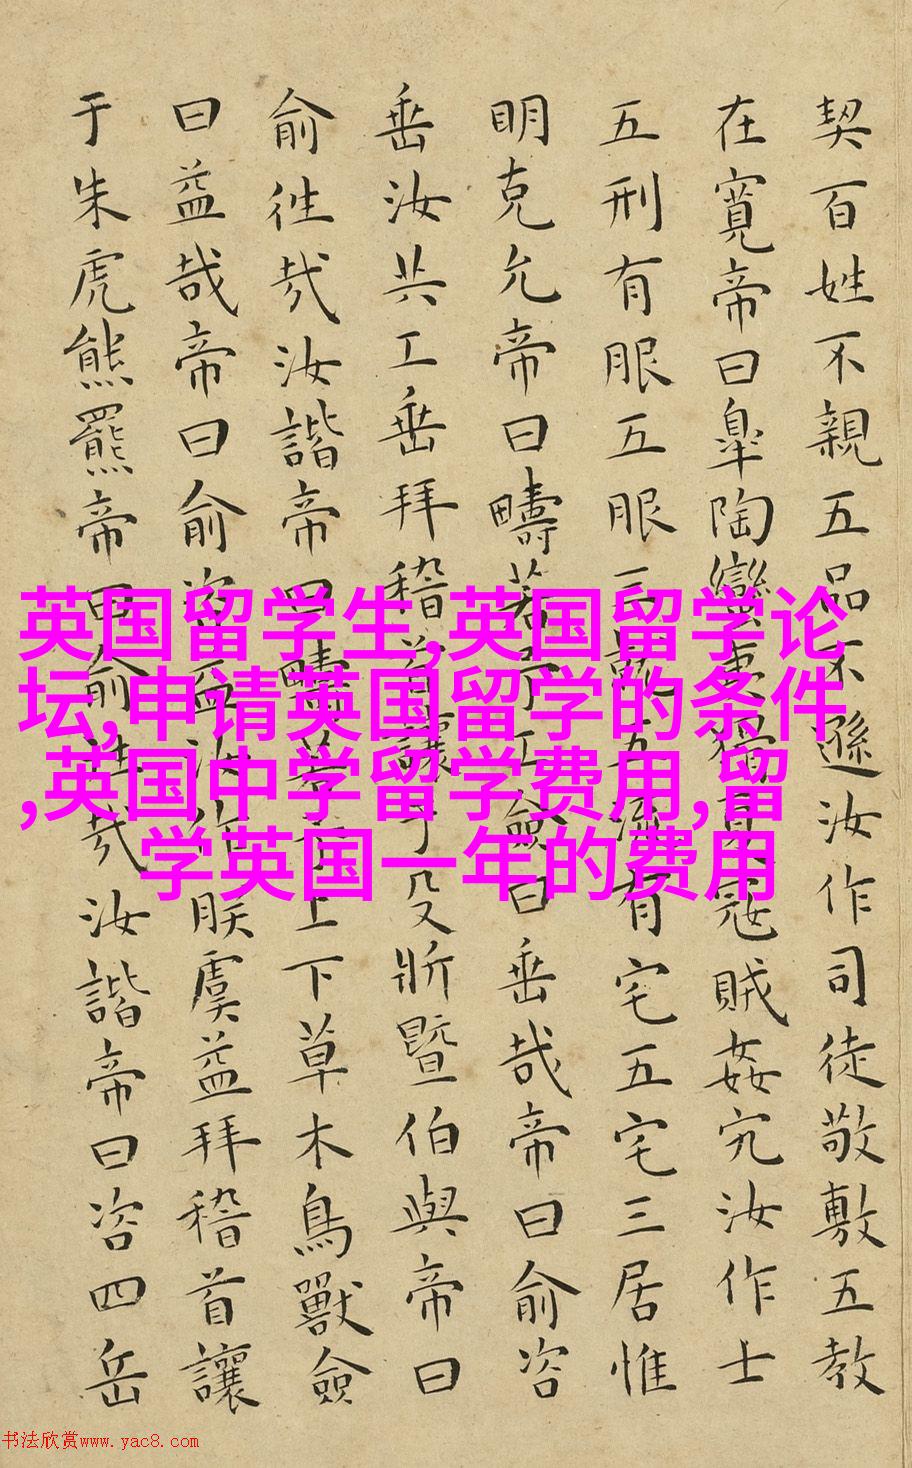 契百姓不親五品不遜汝作司徒敬敷五教
在寬帝曰皐陶蠻夷猾夏寇賊姦宄汝作士
五刑有服五服三就五流有宅五宅三居惟
明克允帝曰疇若予工僉曰垂哉帝曰俞咨
垂汝共工垂拜稽首讓于殳斨暨伯與帝曰
俞往哉汝諧帝曰疇若予上下草木鳥獸僉
曰益哉帝曰俞咨益汝作朕虞益拜稽首讓
于朱虎熊羆帝曰俞往哉汝諧帝曰咨四岳
英国留学生,英国留学论
坛,申请英国留学的条件
,英国中学留学费用,留
学英国一年的费用
书法欣赏www.yac8.com